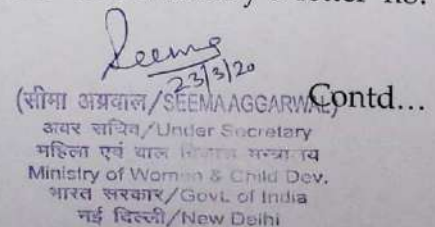 letter no.
Seema
23/3/20
(सीमा अग्रवाल/SEEMA AGGARWAL) Contd...
अवर सचिव/Under Secretary
महिला एवं बाल विकास मन्त्रालय
Ministry of Women & Child Dev.
भारत सरकार/Govt. of India
नई दिल्ली/New Delhi